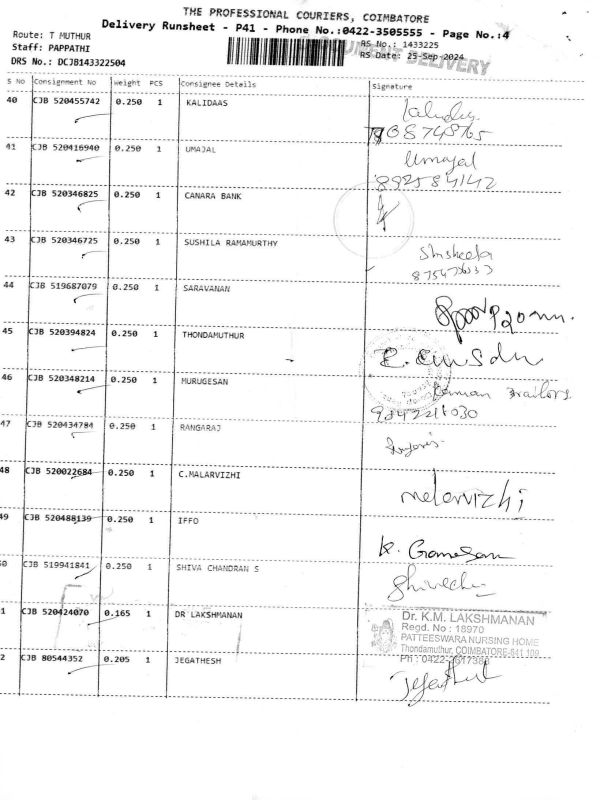 THE PROFESSIONAL COURIERS, COIMBATORE
Delivery Runsheet - P41 - Phone No.:0422-3505555 - Page No.:4
Route: T MUTHUR
Staff: PAPPATHI
DRS No.: DCJB143322504
RS No.: 1433225
RS Date: 25-Sep-2024
DOCUMENT DELIVERY
S No Consignment No Weight PCS Consignee Details Signature
40 CJB 520455742 0.250 1 KALIDAAS
41 CJB 520416940 0.250 1 UMAJAL Umayal
8925841142
42 CJB 520346825 0.250 1 CANARA BANK
43 CJB 520346725 0.250 1 SUSHILA RAMAMURTHY
44 CJB 519687079 0.250 1 SARAVANAN
45 CJB 520394824 0.250 1 THONDAMUTHUR
46 CJB 520348214 0.250 1 MURUGESAN
47 CJB 520434784 0.250 1 RANGARAJ
48 CJB 520022684 0.250 1 C.MALARVIZHI malarvizhi
49 CJB 520488139 0.250 1 IFFO K. Ganesan
0 CJB 519941841 0.250 1 SHIVA CHANDRAN S
1 CJB 520424070 0.165 1 DR LAKSHMANAN
Dr. K.M. LAKSHMANAN
Regd. No : 18970
PATTEESWARA NURSING HOME
Thondamuthur, COIMBATORE-641 109
Ph : 0422-2617388
2 CJB 80544352 0.205 1 JEGATHESH